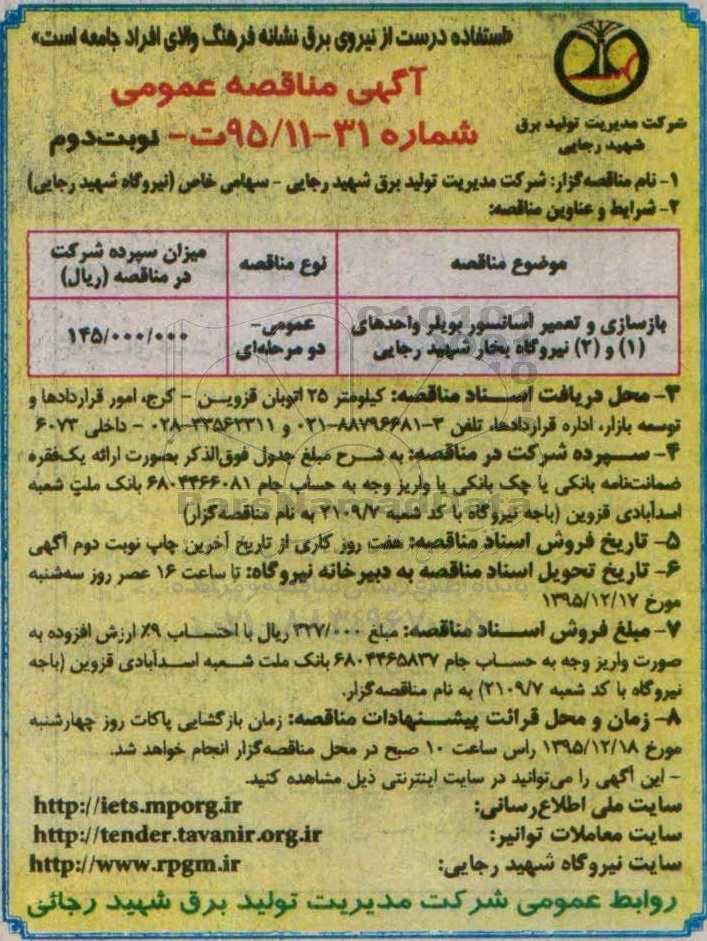 «استفاده درست از نیروی برق نشانه فرهنگ والای افراد جامعه است»
آگهی مناقصه عمومی
شماره ۳۱-۹۵/۱۱ت- نوبت‌دوم
شرکت مدیریت تولید برق
شهید رجایی
۱- نام مناقصه‌گزار: شرکت مدیریت تولید برق شهید رجایی - سهامی خاص (نیروگاه شهید رجایی)
۲- شرایط و عناوین مناقصه:
موضوع مناقصه
نوع مناقصه
میزان سپرده شرکت
در مناقصه (ریال)
بازسازی و تعمیر آسانسور بویلر واحدهای
(۱) و (۲) نیروگاه بخار شهید رجایی
عمومی-
دو مرحله‌ای
۱۴۵/۰۰۰/۰۰۰
۳- محل دریافت اسناد مناقصه: کیلومتر ۲۵ اتوبان قزوین - کرج، امور قراردادها و
توسعه بازار، اداره قراردادها، تلفن ۳-۸۸۷۹۶۶۸۱-۰۲۱ و ۳۳۵۶۲۳۱۱-۰۲۸ - داخلی ۶۰۷۳
۴- سپرده شرکت در مناقصه: به شرح مبلغ جدول فوق‌الذکر بصورت ارائه یک‌فقره
ضمانتنامه بانکی یا چک بانکی یا واریز وجه به حساب جام ۶۸۰۳۴۶۶۰۸۱ بانک ملت شعبه
اسدآبادی قزوین (باجه نیروگاه با کد شعبه ۲۱۰۹/۷ به نام مناقصه‌گزار)
۵- تاریخ فروش اسناد مناقصه: هفت روز کاری از تاریخ آخرین چاپ نوبت دوم آگهی
۶- تاریخ تحویل اسناد مناقصه به دبیرخانه نیروگاه: تا ساعت ۱۶ عصر روز سه‌شنبه
مورخ ۱۳۹۵/۱۲/۱۷
۷- مبلغ فروش اسناد مناقصه: مبلغ ۳۲۷/۰۰۰ ریال با احتساب ۹٪ ارزش افزوده به
صورت واریز وجه به حساب جام ۶۸۰۴۴۶۵۸۳۷ بانک ملت شعبه اسدآبادی قزوین (باجه
نیروگاه با کد شعبه ۲۱۰۹/۷) به نام مناقصه‌گزار.
۸- زمان و محل قرائت پیشنهادات مناقصه: زمان بازگشایی پاکات روز چهارشنبه
مورخ ۱۳۹۵/۱۲/۱۸ راس ساعت ۱۰ صبح در محل مناقصه‌گزار انجام خواهد شد.
- این آگهی را می‌توانید در سایت اینترنتی ذیل مشاهده کنید.
سایت ملی اطلاع‌رسانی: http://iets.mporg.ir
سایت معاملات توانیر: http://tender.tavanir.org.ir
سایت نیروگاه شهید رجایی: http://www.rpgm.ir
روابط عمومی شرکت مدیریت تولید برق شهید رجائی